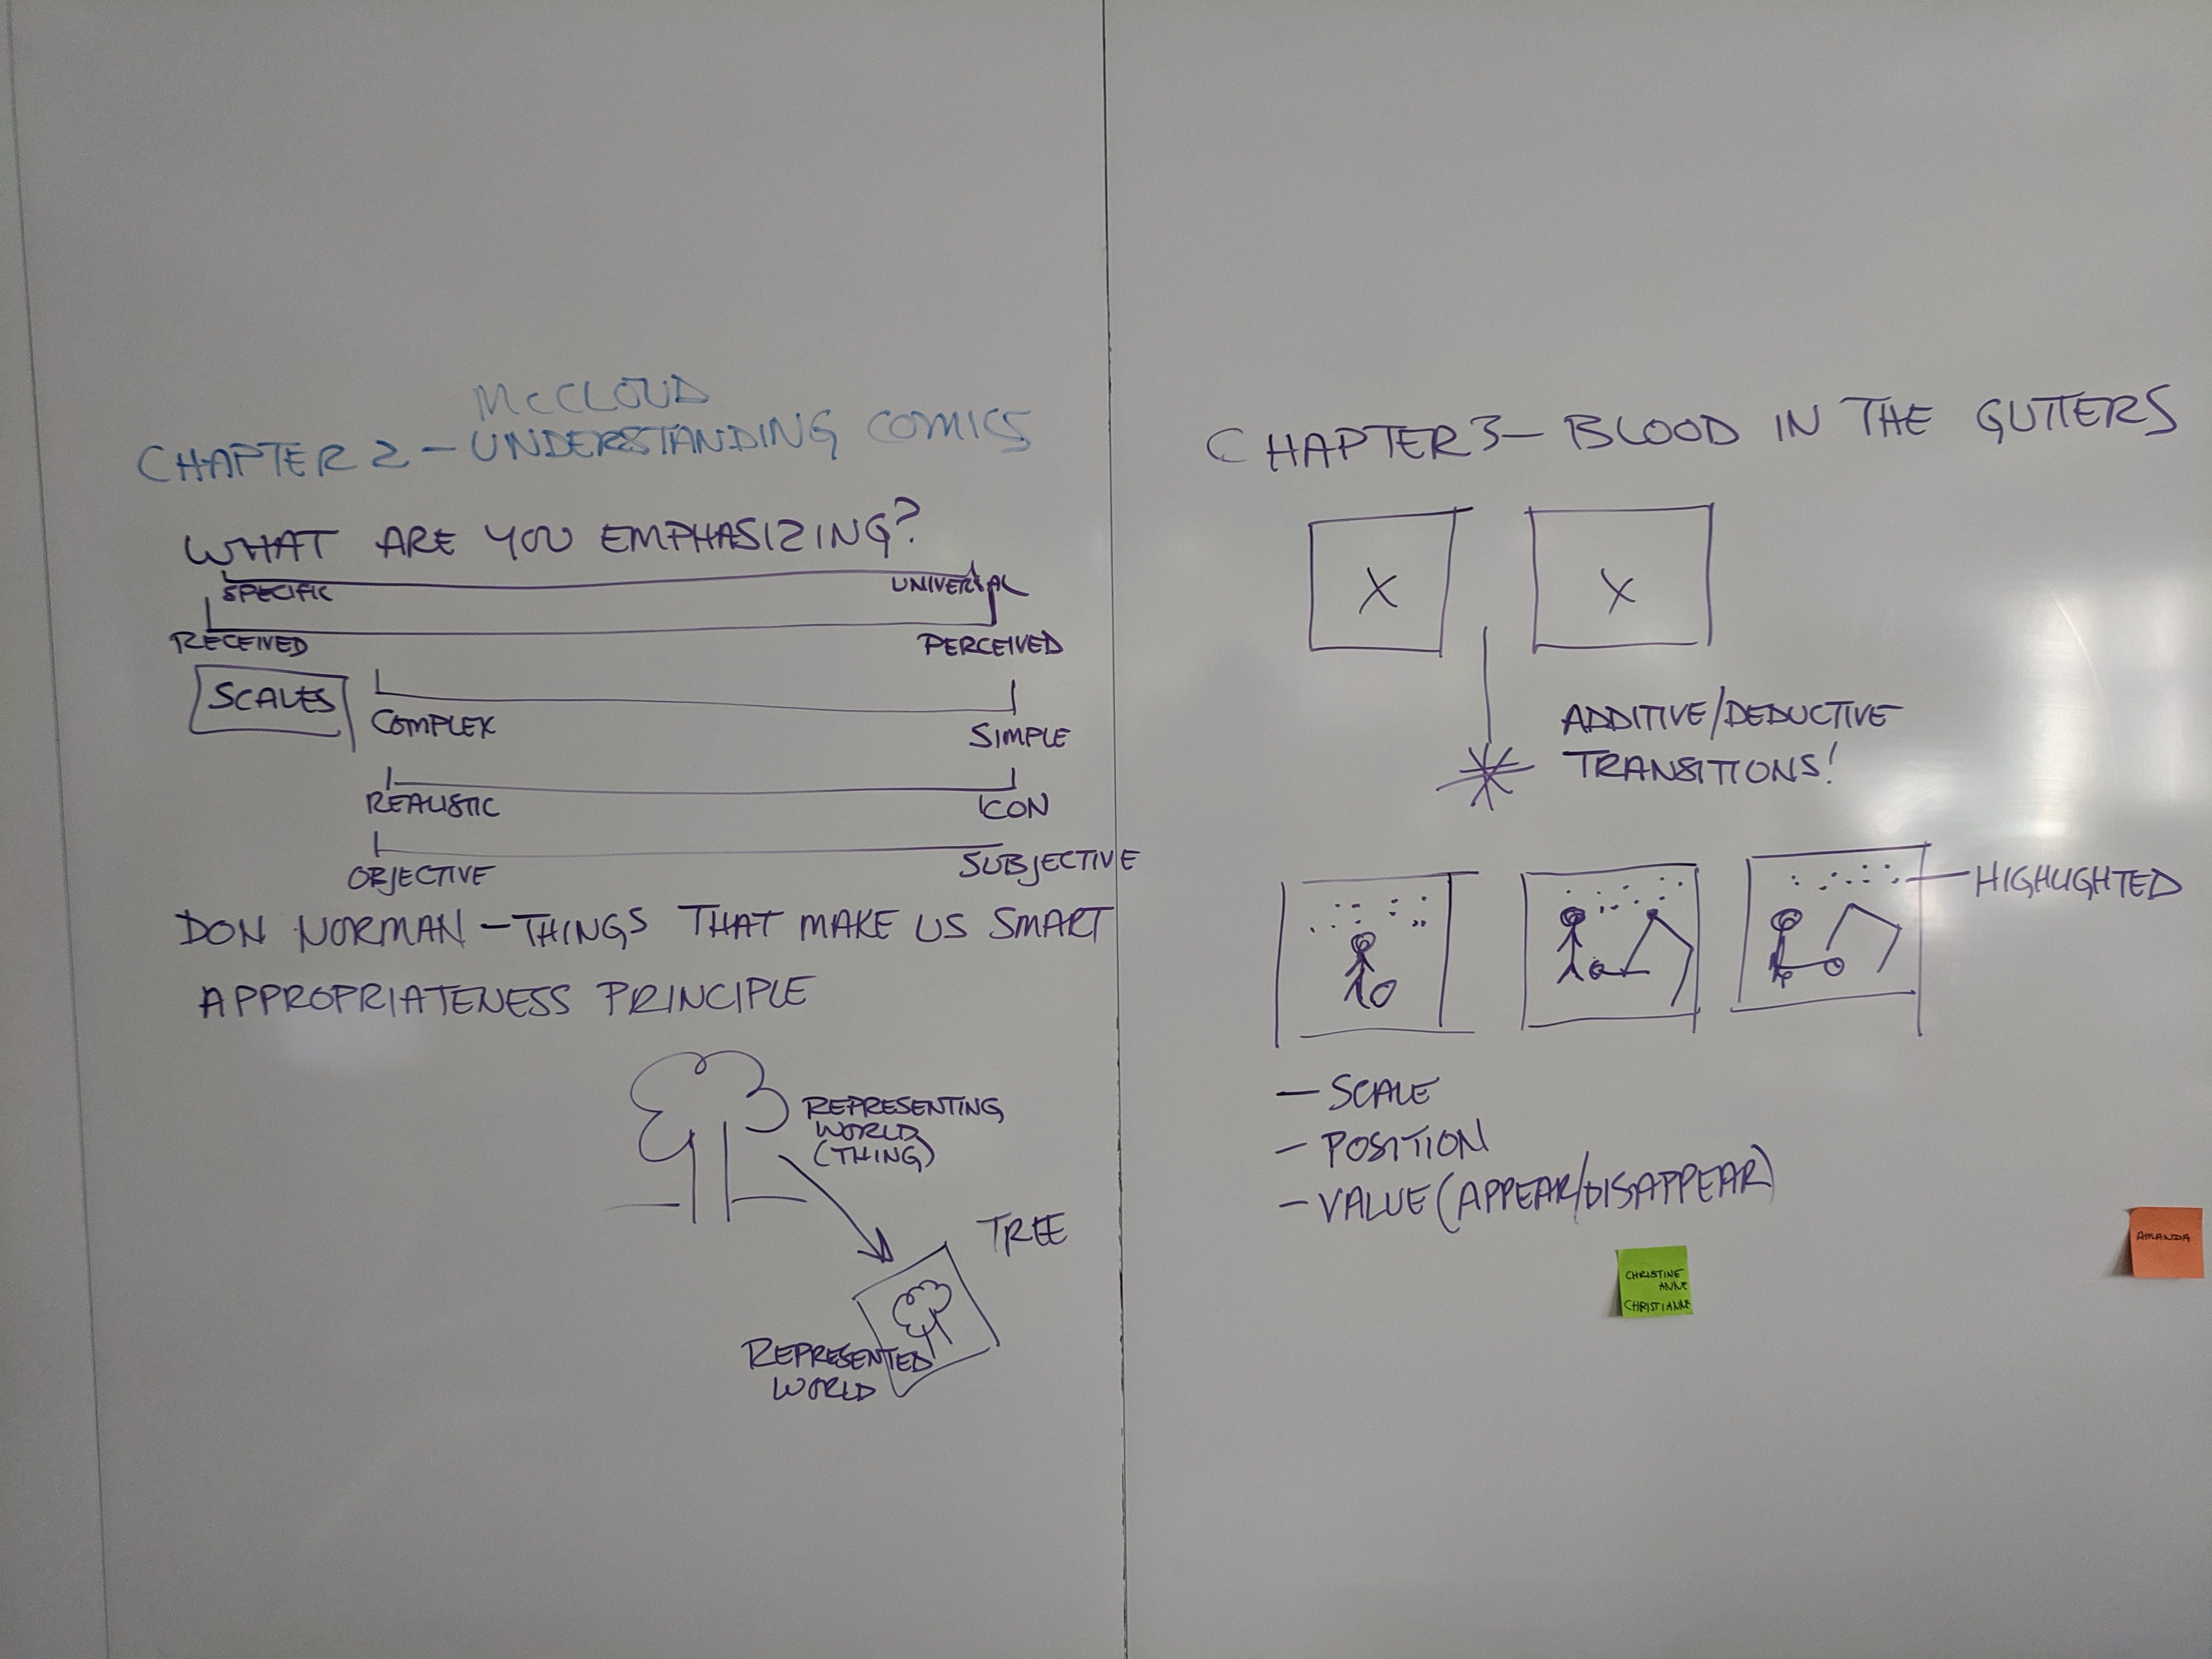 McCLOUD
CHAPTER 2 – UNDERSTANDING COMICS
WHAT ARE YOU EMPHASIZING?
SPECIFIC UNIVERSAL
RECEIVED PERCEIVED
SCALES
COMPLEX SIMPLE
REALISTIC ICON
OBJECTIVE SUBJECTIVE
DON NORMAN – THINGS THAT MAKE US SMART
APPROPRIATENESS PRINCIPLE
REPRESENTING
WORLD
(THING)
TREE
REPRESENTED
WORLD
CHAPTER 3 – BLOOD IN THE GUTTERS
X X
ADDITIVE/DEDUCTIVE
TRANSITIONS!
HIGHLIGHTED
– SCALE
– POSITION
– VALUE (APPEAR/DISAPPEAR)
CHRISTINE
ANNE
CHRISTIANNE
AMANDA